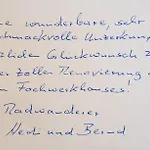 ne wunderbare, sehr
chmackvolle Unterkunf
zlichen Glückwunsch z
er tollen Renovierung
n Fachwerkhauses!
e Radwanderer
und Bernd